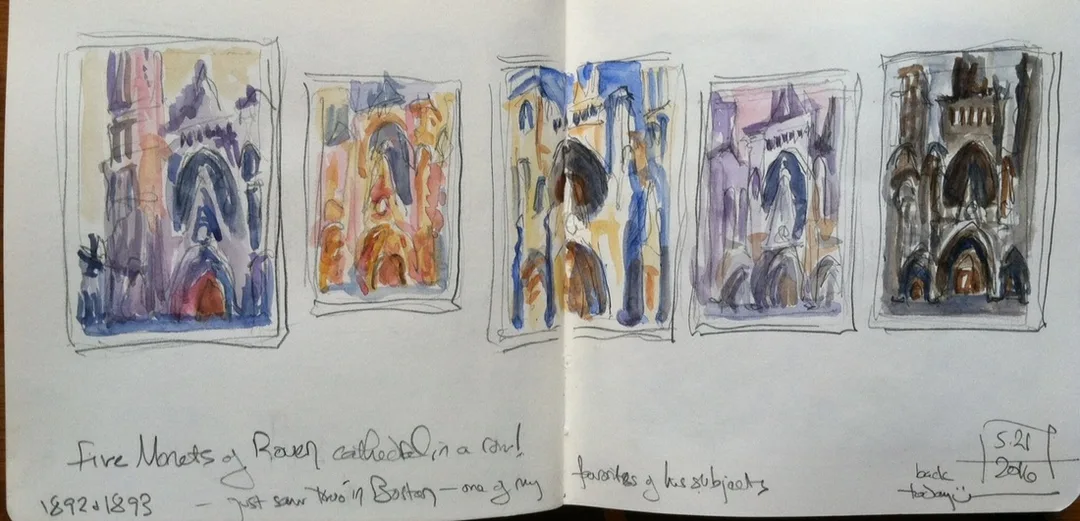 Five Monets of Rouen cathedral in a row!
1892 & 1893 — just saw two in Boston — one of my favorites of his subjects
5.21
2016
back
today